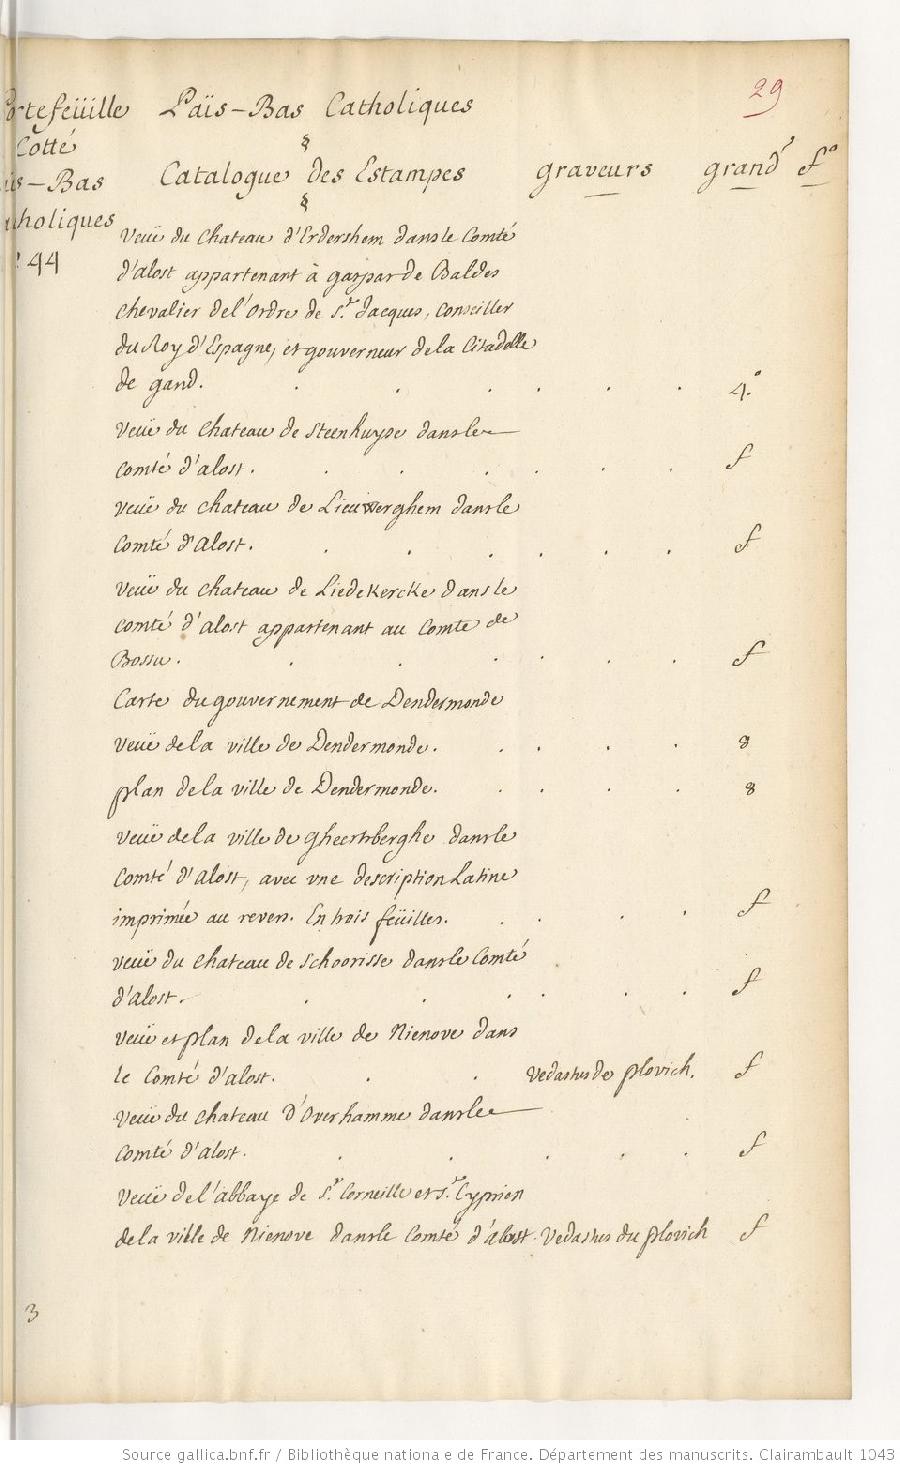 29
ortefeüille Païs-Bas Catholiques
Cotté
is-Bas
Catalogue des Estampes graveurs grand f°
tholiques
44
Veüe du Chateau d'Erdershem dans le Comté
d'alost appartenant à gaspar de Baldes
Chevalier de l'Ordre de St. Jacques, Conseiller
du Roy d'Espagne, et gouverneur de la Citadelle
de gand. . . . . . . 4.°
Veüe du Chateau de Steenhuyse dans le
Comté d'alost. . . . . . . f
Veüe du Chateau de Lieuwerghem dans le
Comté d'Alost. . . . . . . f
Veüe du Chateau de Liedekercke dans le
Comté d'alost appartenant au Comte de
Bossu. . . . . . . f
Carte du gouvernement de Dendermonde
Veüe de la ville de Dendermonde. . . . . 8
plan de la ville de Dendermonde. . . . . 8
Veüe de la ville de gheertsberghe dans le
Comté d'Alost, avec vne description Latine
imprimée au revers. En trois feüilles. . . . . f
Veüe du Chateau de Schoorisse dans le Comté
d'alost. . . . . . . f
Veüe et plan de la ville de Nienove dans
le Comté d'alost. . . Vedastus de plovich. f
Veüe du Chateau D'Overhamme dans le
Comté d'alost. . . . . . f
Veüe de l'abbaye de St. Corneille et St. Cyprien
de la ville de Nienove dans le Comté d'alost. Vedastus du plovich f
3
Source gallica.bnf.fr / Bibliothèque nationa e de France. Département des manuscrits. Clairambault 1043